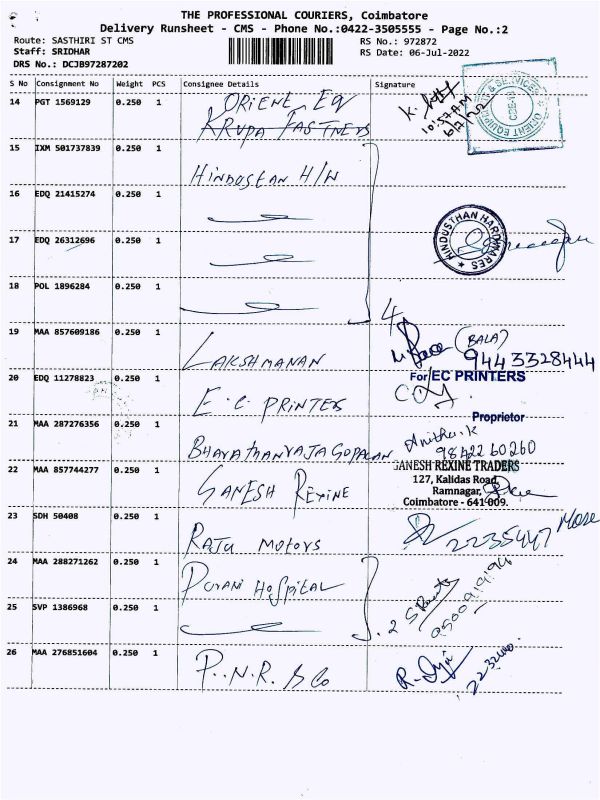 THE PROFESSIONAL COURIERS, Coimbatore
Delivery Runsheet - CMS - Phone No.:0422-3505555 - Page No.:2
Route: SASTHIRI ST CMS
RS No.: 972872
Staff: SRIDHAR
RS Date: 06-Jul-2022
DRS No.: DCJB97287202
S No Consignment No Weight PCS Consignee Details Signature
14 PGT 1569129 0.250 1 ORIENT EQ
KRUPA FASTNERS
K.
10:57 AM
6/7/22
ORIENT EQUIPMENTS & SERVICES
CBE-
15 IXM 501737839 0.250 1 HINDUSTAN H/W
16 EDQ 21415274 0.250 1
17 EDQ 26312696 0.250 1
HINDUSTHAN HARDWARES
18 POL 1896284 0.250 1
4
19 MAA 857609186 0.250 1 LAKSHMANAN
(BALA)
9443328444
20 EDQ 11278823 0.250 1 E.C. PRINTERS
For EC PRINTERS
Proprietor
21 MAA 287276356 0.250 1 BHARATHANRAJAGOPALAN
Anitha.K
9842260260
22 MAA 857744277 0.250 1 GANESH REXINE
GANESH REXINE TRADERS
127, Kalidas Road,
Ramnagar,
Coimbatore - 641 009.
23 SDH 50408 0.250 1 RAJU MOTORS
2235447
24 MAA 288271262 0.250 1 PURANI HOSPITAL
25 SVP 1386968 0.250 1
2
9500919194
26 MAA 276851604 0.250 1 P.N.R. & Co